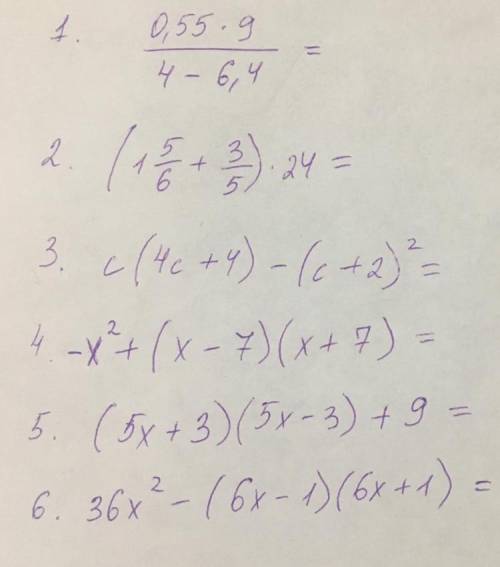 1. 0,55 · 9 / 4 - 6,4 =
2. (1 5/6 + 3/5) · 24 =
3. c(4c + 4) - (c + 2)² =
4. -x² + (x - 7)(x + 7) =
5. (5x + 3)(5x - 3) + 9 =
6. 36x² - (6x - 1)(6x + 1) =